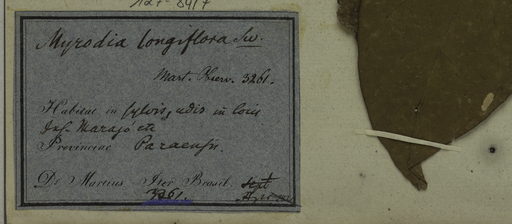 Myrodia longiflora Sw.
Mart. Herv. 3261.
Habitat in sylvis, udis in locis
Ins. Marajó etc
Provinciae Paraensis
D. Martius, Iter Brasil. Sept
3261.